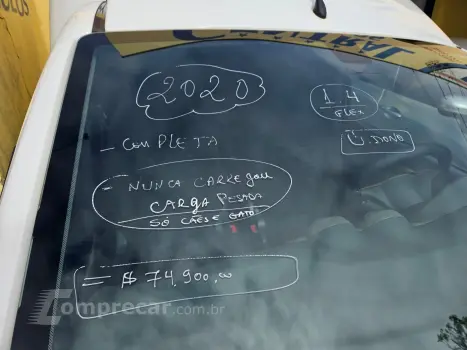 2020
1.4
FLEX
- COMPLETA
Ú. DONO
- NUNCA CARREGOU
CARGA PESADA
SÓ CÃES E GATOS
= $ 74.900,00
Comprecar.com.br